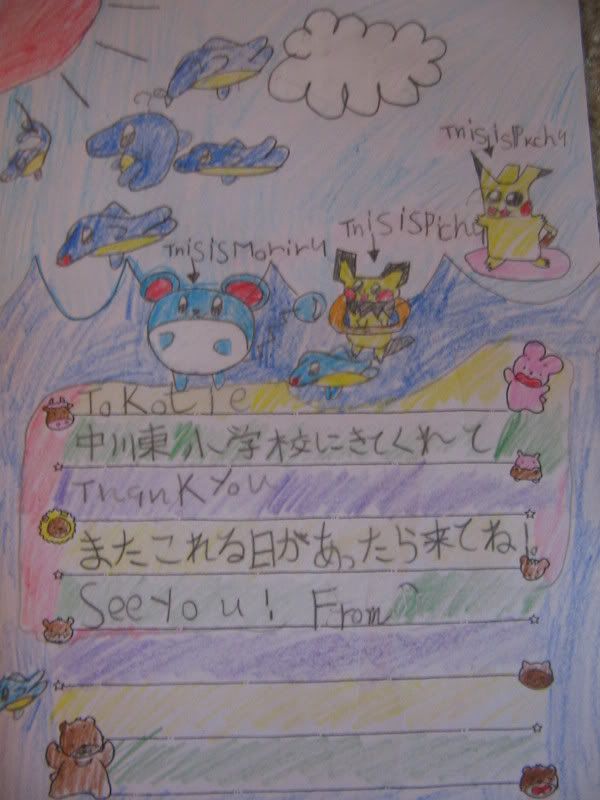 This is Pichu
This is Pichu
This is Moriru
To Kotie
中川東小学校にきてくれて
Thank You
またこれる日があったら来てね!
See You! From